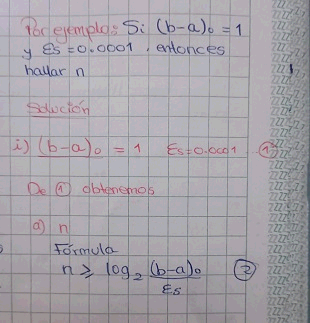 Por ejemplo: Si (b-a)₀ = 1
y Es = 0.0001, entonces
hallar n
Solución
i) (b-a)₀ = 1 Es=0.0001 ... ①
De ① obtenemos
a) n
Fórmula
n ≥ log₂ (b-a)₀ ②
Es